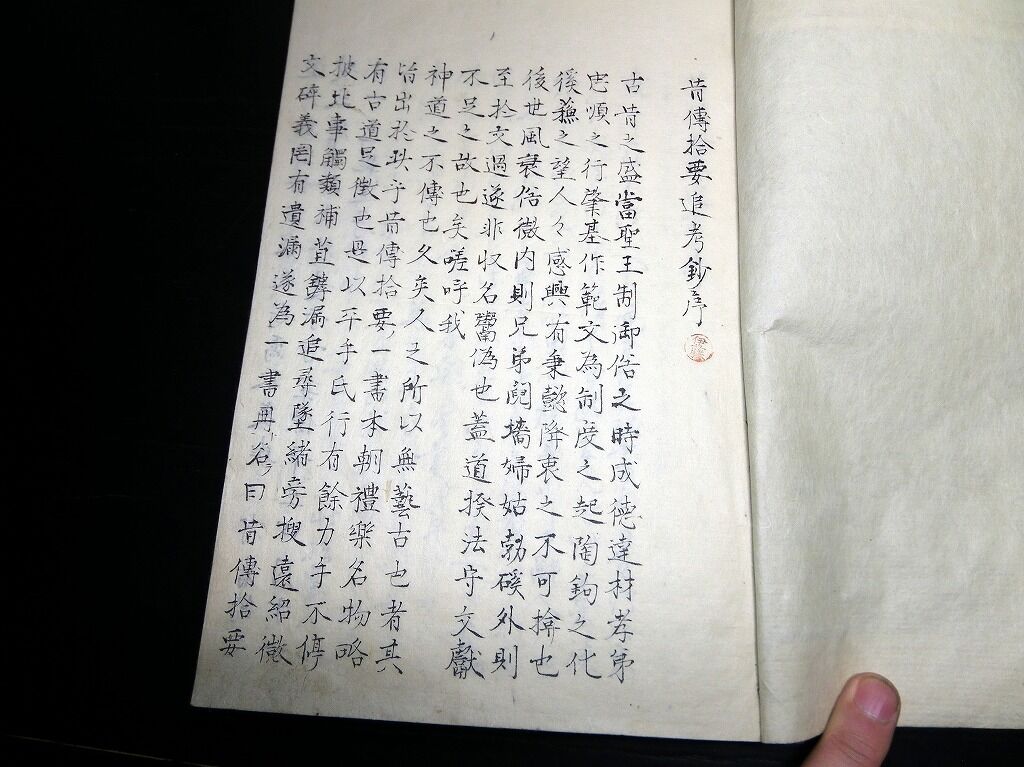 昔傳拾要追考鈔序
古昔之盛當聖王制御俗之時成德達材孝弟
忠順之行肇基作範文為制度之起陶鈞之化
徯蘓之望人々感興有秉懿降衷之不可揜也
後世風衰俗微内則兄弟鬩墻婦姑勃磎外則
至於文過遂非収名鬻偽也蓋道揆法守文獻
不足之故也矣嗟呼我
神道之不傳也久矣人之所以無藝古也者其
皆出於此乎昔傳拾要一書本朝禮樂名物略
有古道足徴也是以平手氏行有餘力手不停
披比事觸類補苴罅漏追尋墜緒旁捜遠紹微
文碎義罔有遺漏遂為一書再名曰昔傳拾要